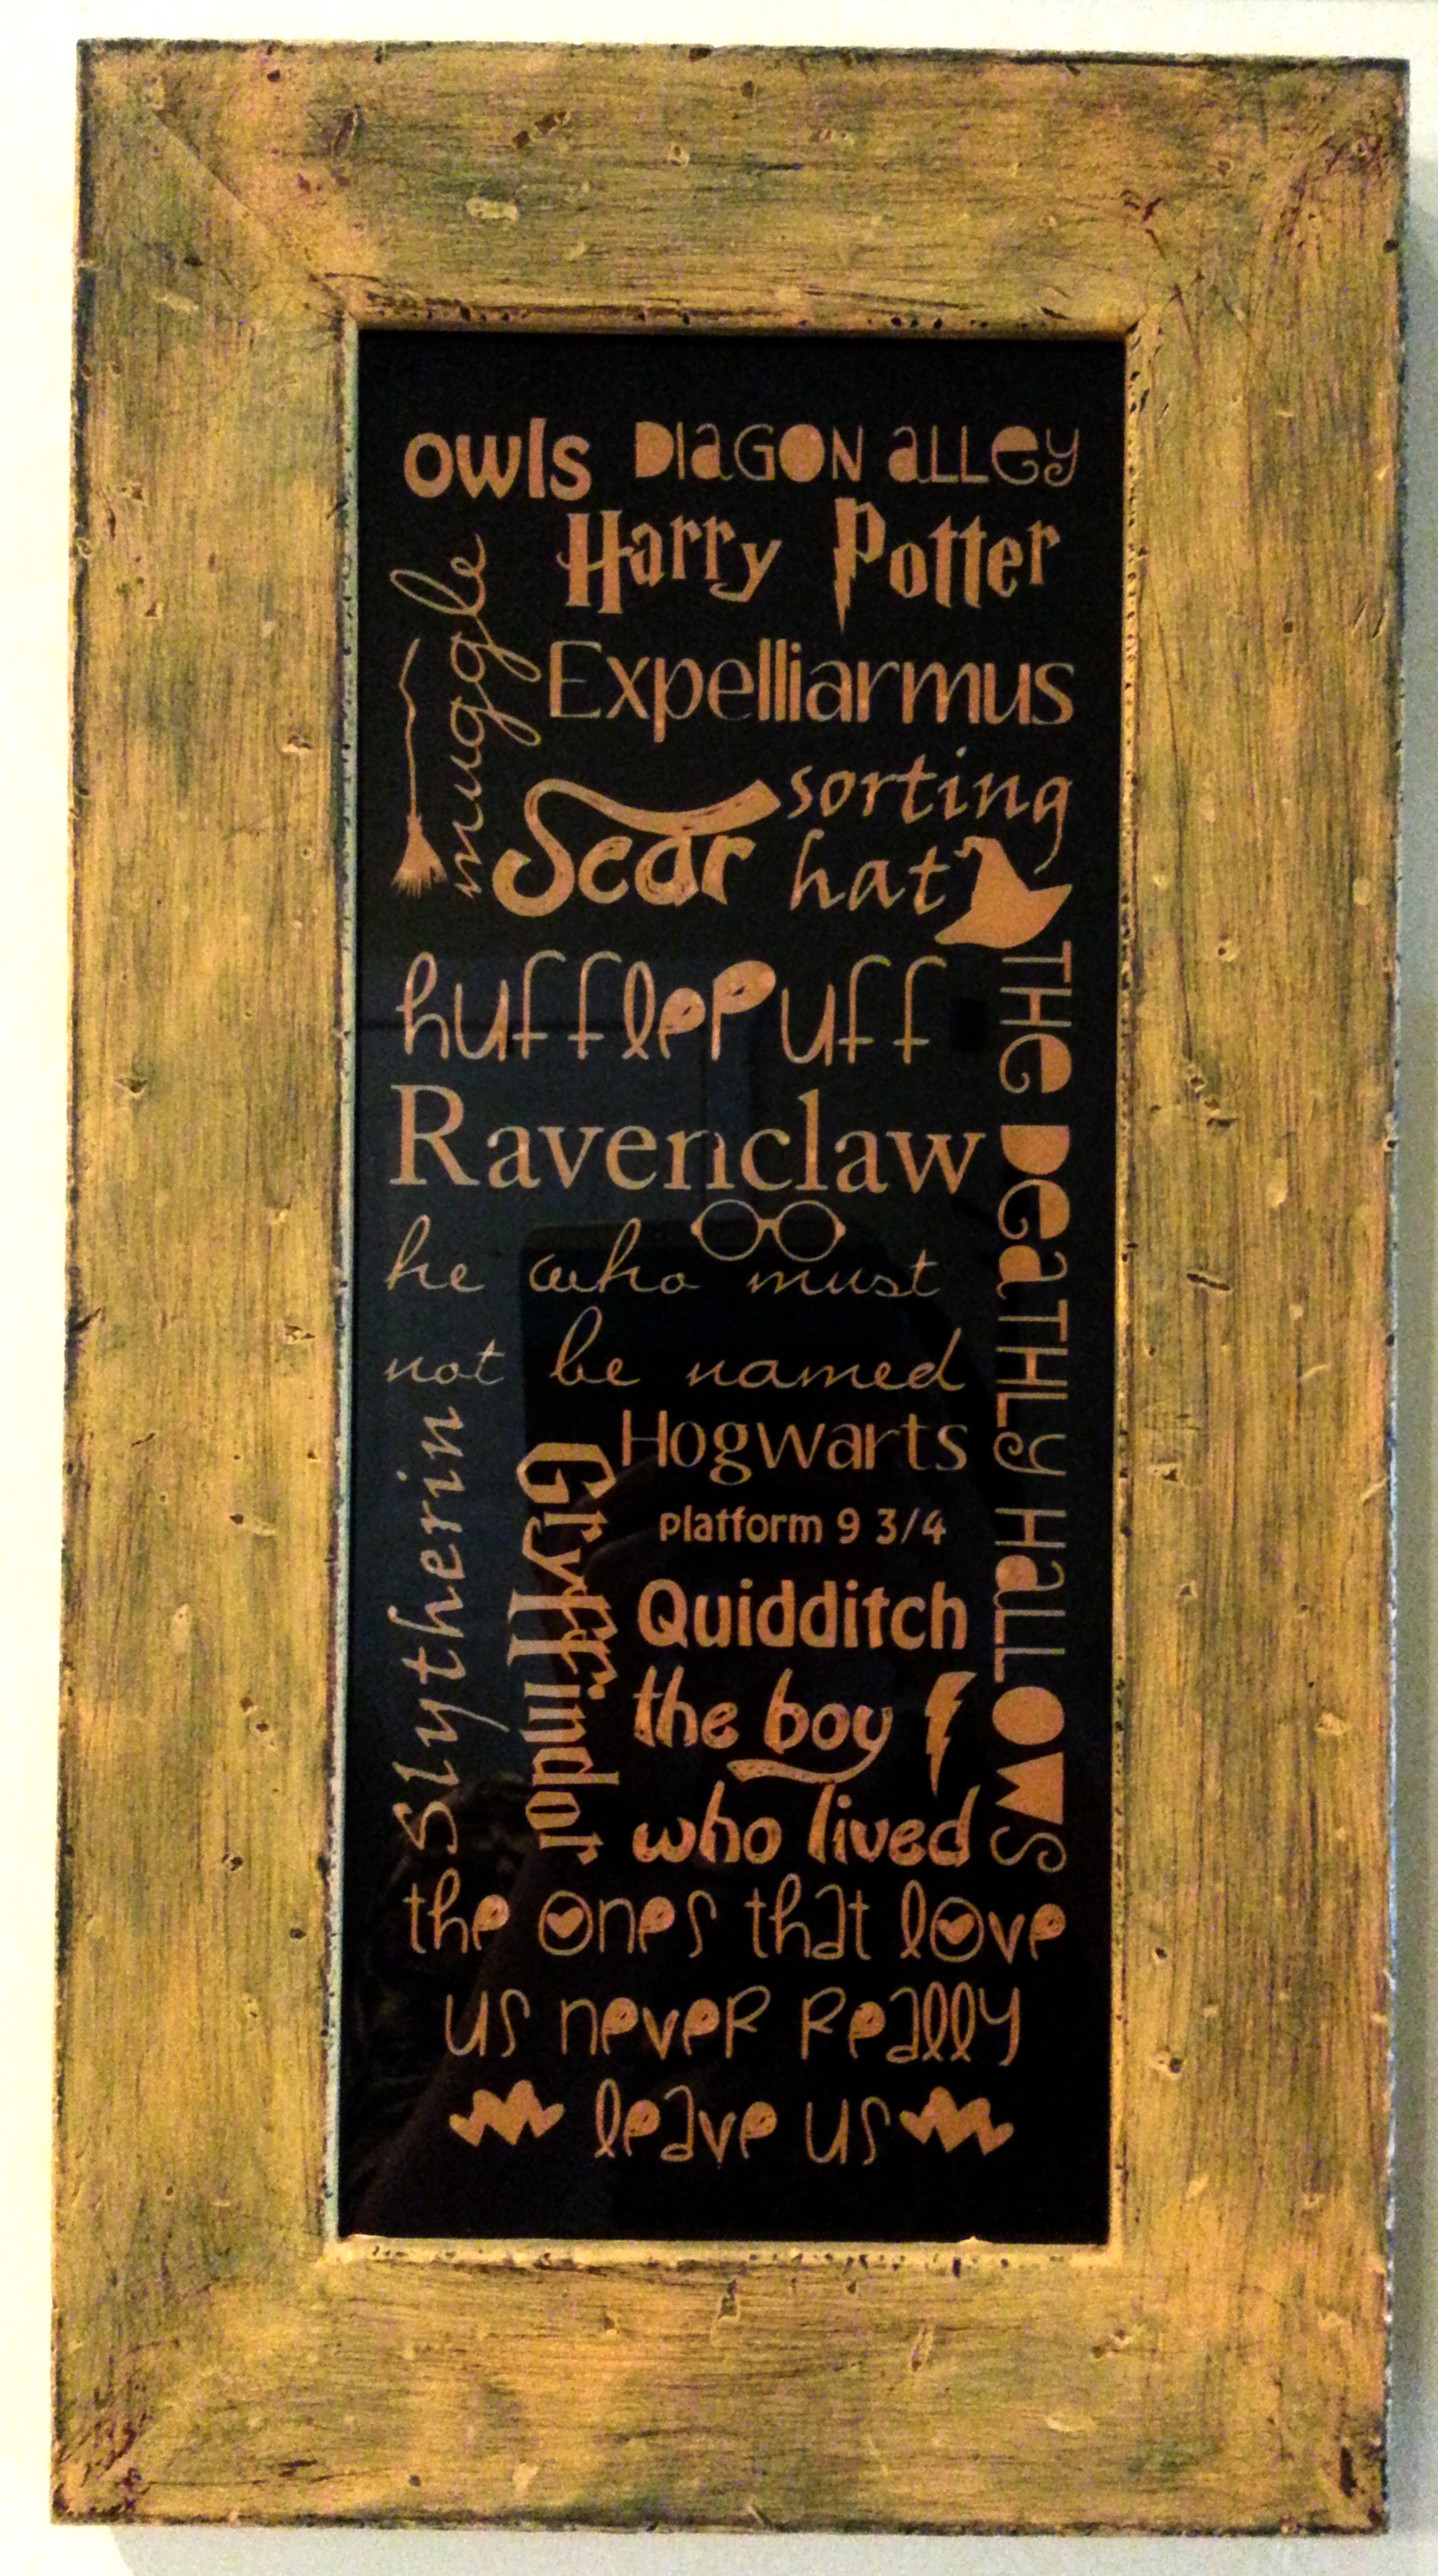 owls DIaGON aLLey
Harry Potter
muggle
Expelliarmus
Scar
sorting
hat
hufflepuff
Ravenclaw
THe DeaTHLy HaLLOWS
he who must
not be named
Slytherin
Gryffindor
Hogwarts
platform 9 3/4
Quidditch
the boy
who lived
the ones that love
us never really
leave us